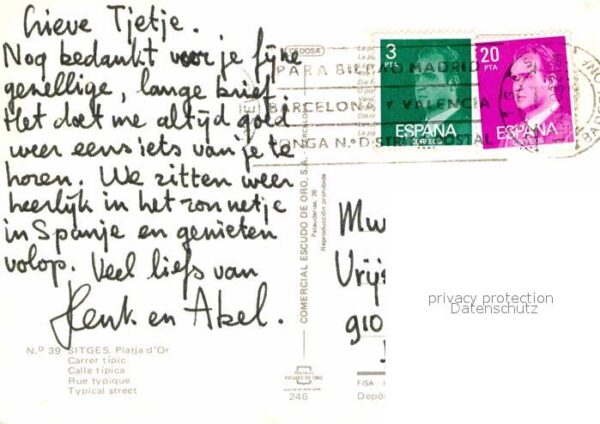 Lieve Tjetje.
Nog bedankt voor je fijne
gezellige, lange brief.
Het doet me altijd goed
weer eens iets van je te
horen. We zitten weer
heerlijk in het zonnetje
in Spanje en genieten
volop. Veel liefs van
Henk en Abel.
N.º 39 SITGES. Platja d'Or
Carrer típic
Calle típica
Rue typique
Typical street
COMERCIAL ESCUDO DE ORO, S.A.
Palaudarias, 26
Reproducción prohibida
ESCUDO DE ORO
246
FISA
Depós
PARA BILBAO MADRID
BARCELONA Y VALENCIA
PONGA N.º DISTRITO POSTAL
3
PTA
ESPAÑA
CORREOS
20
PTA
ESPAÑA
CORREOS
Mw
Vrijs
910
privacy protection
Datenschutz